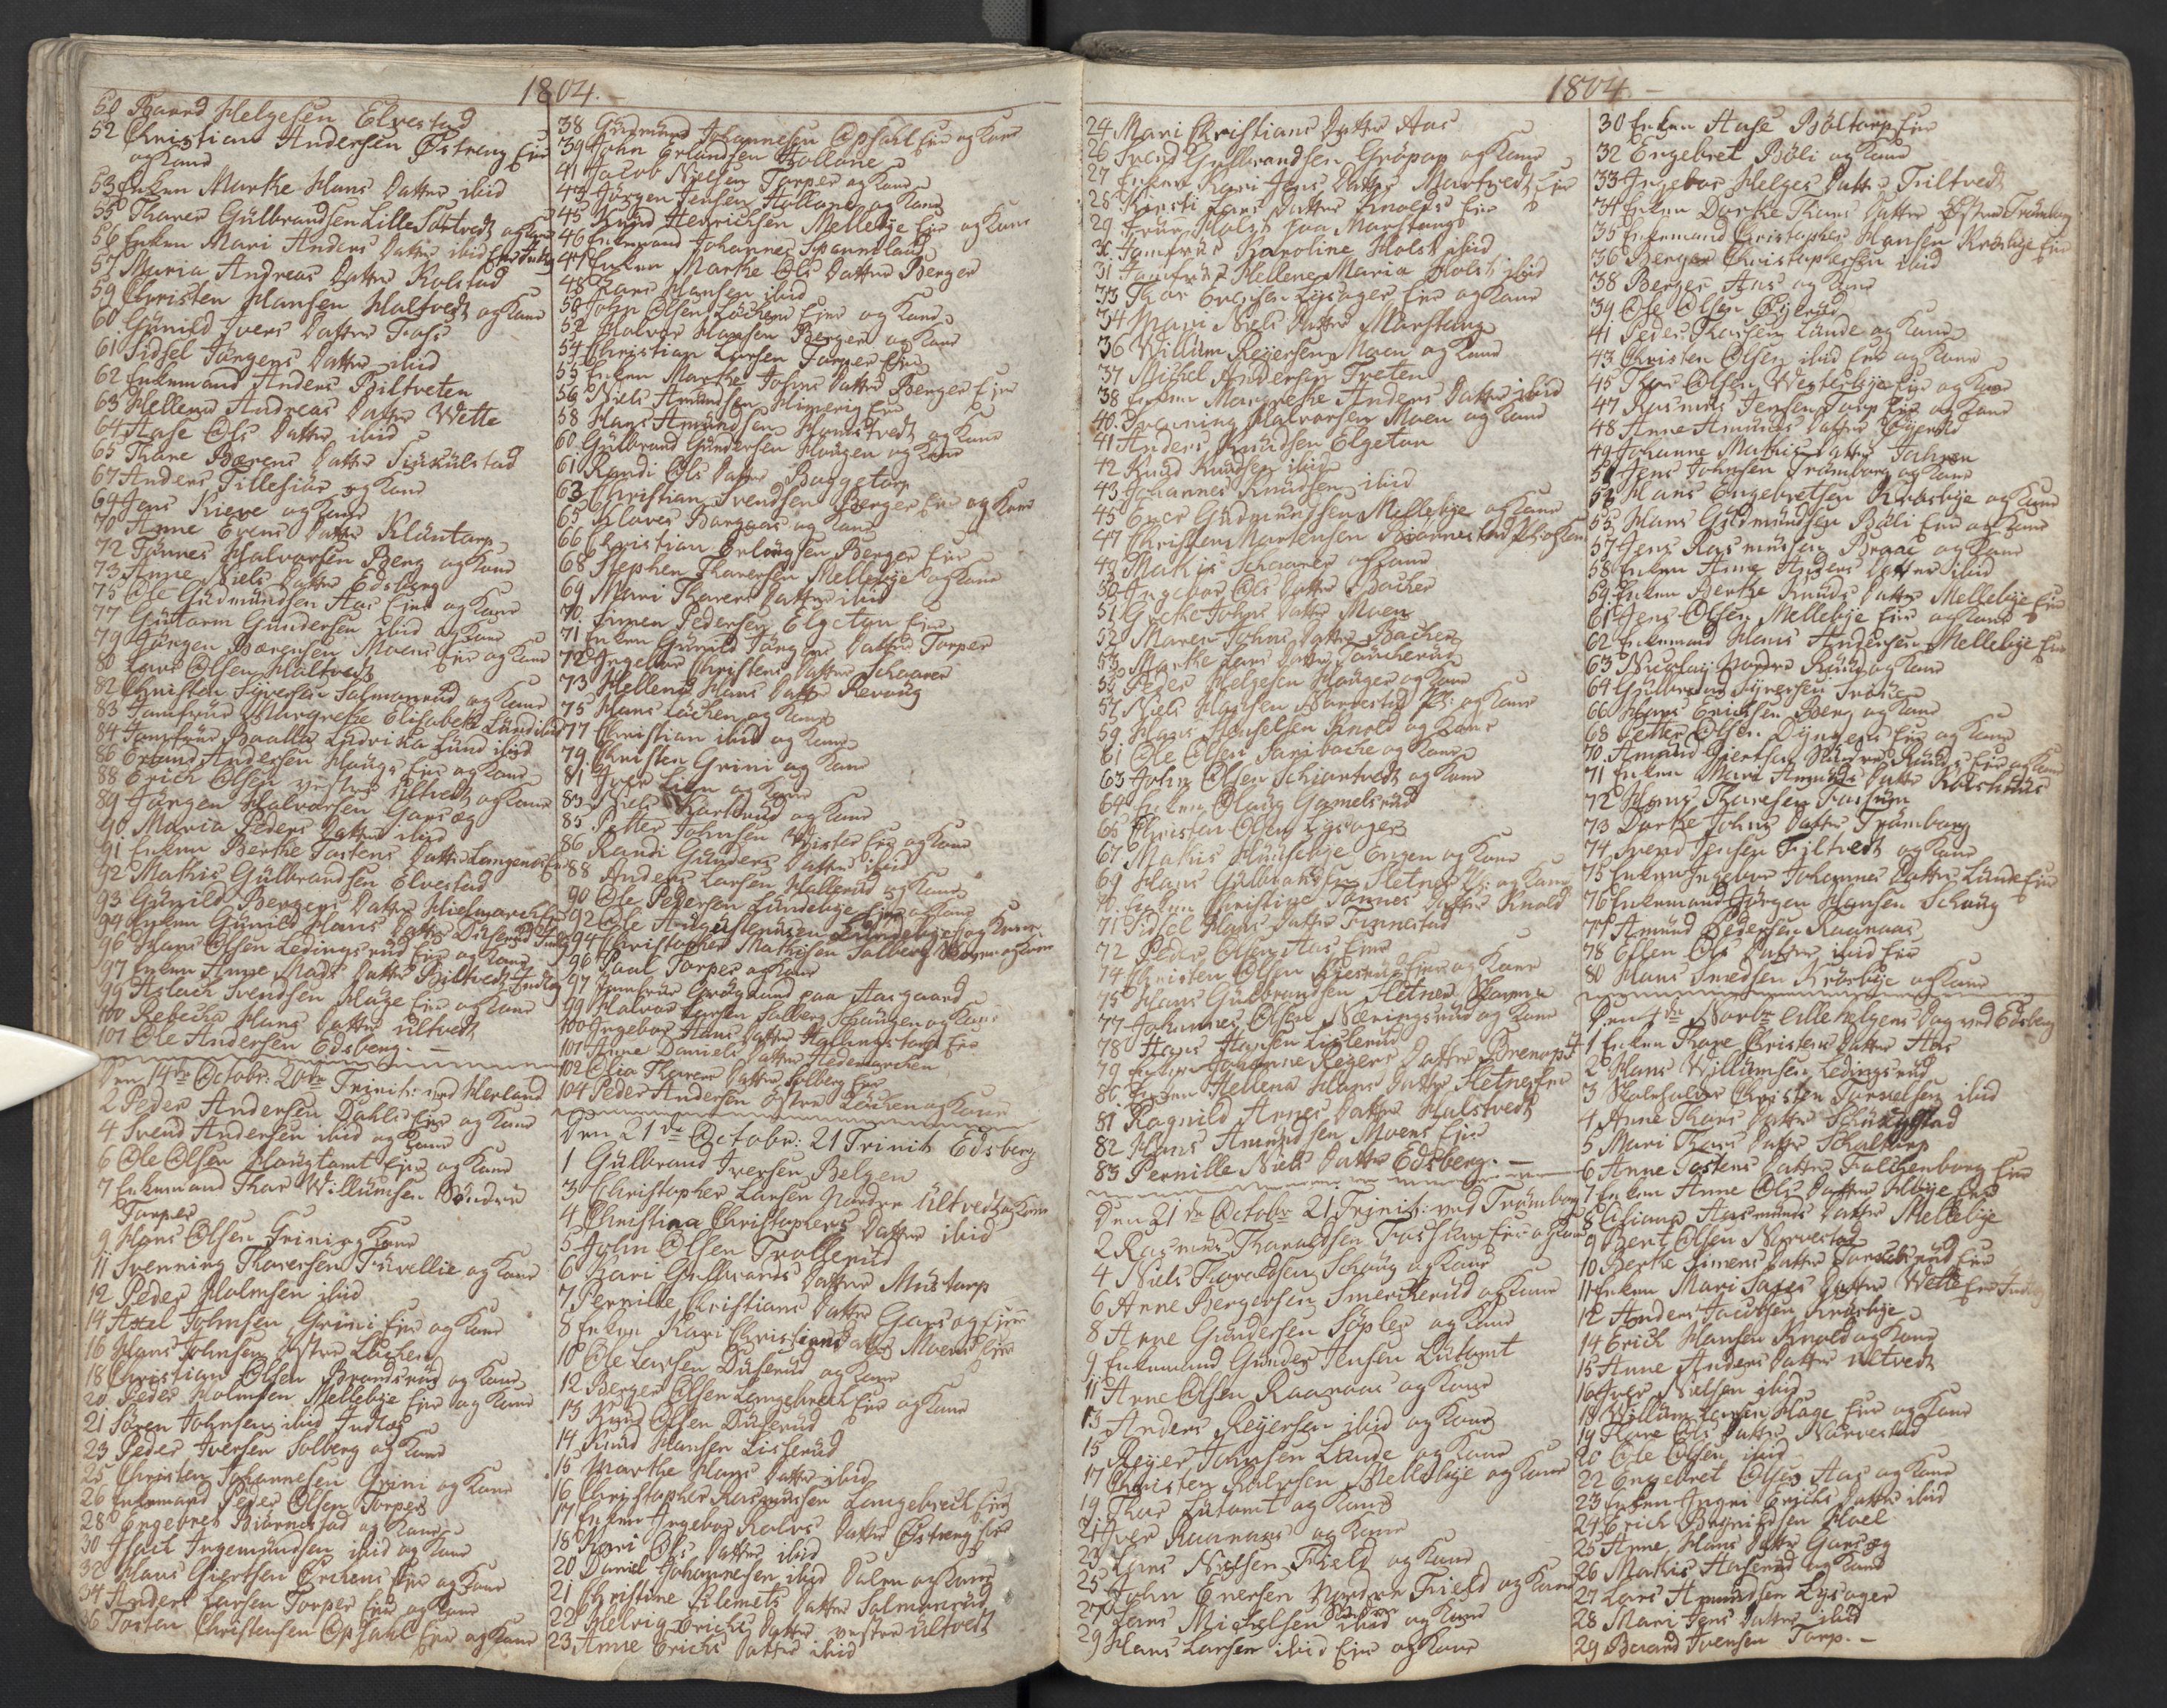 1804.
50 Baard Helgesen Elvestad
52 Christian Andersen Østreng Eier
og Kone
53 Enken Marthe Hans Datter ibid
55 Thorer Gülbrandsen Lille Sæstvedt og Kone
56 Enken Mari Anders Datter ibid
57 Maria Andreas Datter Rolstad
59 Christen Hansen Haltvedt og Kone
60 Günild Ivers Datter Foss
61 Sidsel Jørgens Datter ibid
62 Enkemand Anders Biltveten
63 Hellene Andreas Datter Wette
64 Aase Ols Datter ibid
65 Thore Børens Datter
67 Anders og Kone
69 Jens Kieve og Kone
70 Anne Evens Datter Klüntorp
72 Tønnes Halvorsen Berg og Kone
73 Anne Niels Datter Edsberg
75 Ole Güdmündsen Aas Eier og Kone
77 Güttorm Gundersen ibid og Kone
79 Jørgen Børensen Moens Eier og Kone
80 Lars Olsen Haltvedt
82 Christen Syversen Salmonrud og Kone
83 Jomfrue Margrethe Elisabeth Lund ibid
84 Jomfrue Lüdvika Lund ibid
86 Erland Andersen Haug Eier og Kone
88 Erich Olsen vestre Ultvedt og Kone
89 Jørgen Halvorsen Garseg
90 Maria Peders Datter ibid
91 Enken Berthe Tostens Datter
92 Mathis Gülbrandsen Elvestad
93 Günild Bergers Datter
94 Enken Günild Hans Datter Düserüd
96 Hans Olsen Ledingsrud Eier og Kone
97 Enken Anne Mads Datter Biltvedt
99 Aslach Svendsen Hage Eier og Kone
100 Rebecka Hans Datter Ultvedt
101 Ole Andersen Edsberg. —
Den 14de Octobr: 20de Trinit: ved Herland
2 Peder Andersen Dahl Eier og Kone
4 Svend Andersen ibid og Kone
6 Ole Olsen Haugtomt Eier og Kone
7 Enkemand Thor Willumsen Søndre
Torper
9 Hans Olsen Grini og Kone
11 Svenning Thoresen Füvellie og Kone
12 Peder Holmsen ibid
14 Axel Johnsen Grini Eier og Kone
16 Hans Johnsen østre Løchen
18 Christian Olsen Brandsrud og Kone
20 Peder Holmsen Mellebye Eier og Kone
21 Søren Johnsen ibid
23 Peder Iversen Solberg og Kone
25 Christen Johannesen Grini og Kone
26 Enkemand Peder Olsen Torper
28 Engebret Biørnestad og Kone
30 Ingemündsen ibid og Kone
32 Hans Giertsen Eier og Kone
34 Anders Larsen Torper Eier og Kone
36 Tosten Christensen Opsahl Eier og Kone
38 Güdmund Johannesen Opsahl Eier og Kone
39 John Erlandsen Holland
41 Jacob Nielsen Torper og Kone
43 Jørgen Jensen Holland og Kone
45 Knud Henrichsen Mellebye Eier og Kone
46 Enkemand Johannes
47 Enken Marthe Ols Datter Berger
48 Lars Hansen ibid
50 John Olsen Løchen Eier og Kone
52 Halvor Hansen Berger og Kone
54 Christian Larsen Torper Eier
55 Enken Marthe Johns Datter Berger Eier
56 Niels Amundsen Himerig Eier
58 Hans Amündsen Hamstvedt og Kone
60 Gülbrand Gundersen Haugen og Kone
61 Randi Ols Datter Buggetorp
63 Christian Svendsen Berger Eier og Kone
65 Klaves Borgaas og Kone
66 Christian Erlingsen Berger Eier
68 Stephen Thoresen Mellebye og Kone
69 Mari Thorers Datter ibid
70 Simen Pedersen Elgetun Eier
71 Enken Günild Jørgens Datter Torper
72 Ingebor Christens Datter Schaarer
73 Hellene Hans Datter Revoug
75 Hans Løchen og Kone
77 Christian ibid og Kone
79 Christen Grini og Kone
81 Iver Lien og Kone
83 Niels Karterud og Kone
85 Petter Johnsen Wister Eier og Kone
86 Randi Günders Datter ibid
88 Anders Larsen Hallerud og Kone
90 Ole Pedersen Lundebye Eier og Kone
92 Ole Augustinusen Lundebye og Kone
94 Christopher Mathisen Solberg og Kone
96 Paul Torper og Kone
97 Jomfrue paa Aasgaard
99 Halvor Larsen Solberg og Kone
100 Ingebor Hans Datter
101 Anne Daniels Datter Hedemarchen
102 Olia Thorers Datter Solberg Eier
104 Peder Andersen østre Løchen og Kone
Den 21de Octobr: 21 Trinit: Edsberg
1 Gülbrand Iversen Belgen
3 Christopher Larsen Nordre Ultvedt og Kone
4 Christina Christophers Datter ibid
5 John Olsen Trollerud
6 Kari Gulbrands Datter Müstorp
7 Pernille Christians Datter Garseg Eier
8 Enken Kari Christians Datter Moens Eier
10 Ole Larsen Düserud og Kone
12 Berger Olsen Langebrech Eier og Kone
13 Knud Olsen Düserud
14 Knud Hansen Listerud
15 Marthe Hans Datter ibid
16 Christopher Rasmussen Langebrech Eier
17 Enken Ingebor Rolvs Datter Østreng Eier
18 Kari Ols Datter ibid
20 Daniel Johannesen ibid og Kone
21 Christine Klemets Datter Salmonrud
22 Helvig Erichs Datter vestre Ultvedt
23 Anne Erichs Datter ibid
1804. —
24 Mari Christians Datter Aas
26 Svend Gullbrandsen Grøpop og Kone
27 Enken Kari Jens Datter Martvedt Eier
28 Kirsti Lars Datter Knolds Eier
29 Frue Holst paa Morstong
30 Jomfrue Karoline Holst ibid
31 Jomfrue Hellene Maria Holst ibid
33 Thor Evensen Lysager Eier og Kone
34 Mari Niels Datter Morstong
36 Willum Reyersen Moen og Kone
37 Michel Andersen Treten
38 Enken Margrethe Anders Datter ibid
40 Svenning Halvorsen Moen og Kone
41 Anders Knudsen Elgetun
42 Knud Knudsen ibid
43 Johannes Knudsen ibid
45 Ener Gudmundsen Mellebye og Kone
47 Christen Mortensen Biørnestad og Kone
49 Mathis Schaarer og Kone
50 Ingebor Ols Datter Bacher
51 Grethe Johns Datter Moen
52 Maren Johns Datter Bacher
53 Marthe Lars Datter Toucherud
55 Peder Helgesen Hauger og Kone
57 Niels Hansen Narvestad og Kone
59 Hans Knold og Kone
61 Ole Olsen og Kone
63 John Olsen Schiørtvedt og Kone
64 Enken Olaug Gamelsrud
65 Christen Olsen Lysager
67 Mathis Huusebye Engen og Kone
69 Hans Gülbrandsen Sletner og Kone
70 Enken Christine Tønnes Datter Knold
71 Sidsel Hans Datter Finnestad
72 Peder Olsen Aas Eier
74 Christen Olsen Eier og Kone
75 Hans Gülbrandsen Sletner
77 Johannes Olsen Næringsrud og Kone
78 Hans Hansen Listerud
79 Enken Johanne Reyers Datter
80 Enken Hellene Hans Datter Sletner Eier
81 Ragnild Arnes Datter Hulstvedt
82 Hans Amündsen Moens Eier
83 Pernille Niels Datter Edsberg. —
Den 21de Octobr 21 Trinit: ved Trømborg
2 Rasmus Haraldsen Fosshaug Eier og Kone
4 Niels Haraldsen Schaug og Kone
6 Arne Bergersen Smerikerud og Kone
8 Arne Gundersen Søpler og Kone
9 Enkemand Gunder Jensen Lütomt
11 Arne Olsen Raanaas og Kone
13 Anders Reyersen ibid og Kone
15 Reyer Johnsen Lunde og Kone
17 Christen Mellebye og Kone
19 Thor Lütomt og Kone
21 Iver Raanaas og Kone
23 Lars Nielsen Field og Kone
25 John Enersen Nordre Field og Kone
27 Lars Michelsen ibid og Kone
29 Hans Larsen ibid Eier og Kone
30 Enken Aase Bøltorp Eier
32 Engebret Bøli og Kone
33 Ingebor Helges Datter Tiltvedt
34 Enken Dorthe Thors Datter Østre Trømborg
35 Enkemand Christopher Hansen Krosbye Eier
36 Berger Christophersen ibid
38 Berger Aas og Kone
39 Ole Olsen Øyerud
41 Peder Thorsen Lunde og Kone
43 Christen Olsen ibid Eier og Kone
45 Thor Olsen Westerbye Eier og Kone
47 Rasmus Jensen Torp Eier og Kone
48 Anne Amunds Datter Øyerud
49 Johanne Mathis Datter Jahren
51 Jens Johnsen Trømborg og Kone
53 Hans Engebretsen Krosbye og Kone
55 Hans Güdmundsen Bøli Eier og Kone
57 Jens Rasmussen Braae og Kone
58 Enken Anne Anders Datter ibid
59 Enken Berthe Knuds Datter Mellebye Eier
61 Jens Olsen Mellebye Eier og Kone
62 Enkemand Hans Andersen Mellebye Eier
63 Nicolay Nordre Ruud og Kone
64 Gülbrand Syversen
66 Hans Erichsen Berg og Kone
68 Petter Olsen Eier og Kone
70 Amund Giertsen Søndre Ruuds Eier og Kone
71 Enken Mari Amunds Datter
72 Hans Thoresen
73 Dorthe Johns Datter Trømborg
74 Svend Jensen Tiltvedt og Kone
75 Enken Ingebor Johannes Datter Lunde Eier
76 Enkemand Jørgen Hansen Schaug
77 Amund Pedersen Raanaas
78 Ellen Ols Datter ibid Eier
80 Hans Smedsen Krosbye og Kone
Den 4de Novbr Allehelgens Dag ved Edsberg
1 Enken Thore Christens Datter Aas
2 Hans Willumsen Ledingsrud
3 Skoleholder Christen Tørrelsen ibid
4 Anne Thors Datter
5 Mari Thors Datter
6 Anne Tostens Datter Falchenborg Eier
7 Enken Anne Ols Datter Eier
8 Aasmunds Datter Mellebye
9 Bent Olsen Narvestad
10 Berthe Simens Datter Eier
11 Enken Mari Datter Wette
12 Anders Jacobsen Krosbye
14 Erich Hansen Knold og Kone
15 Anne Anders Datter Ultvedt
16 Iver Nielsen ibid
18 Willum Hage Eier og Kone
19 Thore Ols Datter Narvestad
20 Ole Olsen ibid
22 Engebret Olsen Aas og Kone
23 Enken Ingri Erichs Datter ibid
24 Erich Moel
25 Anne Hans Datter Garseg
26 Mathis Aaserud og Kone
27 Lars Amundsen Lysager
28 Mari Jens Datter ibid
29 Baard Ivensen Torp. —